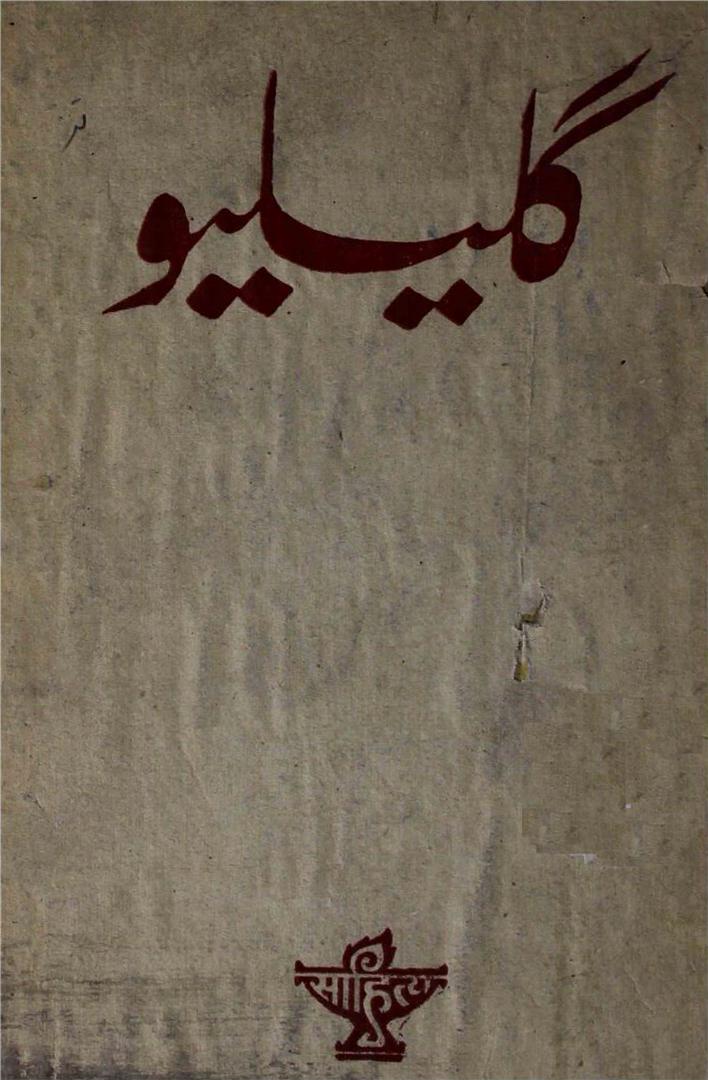 گلیلیو
साहित्य